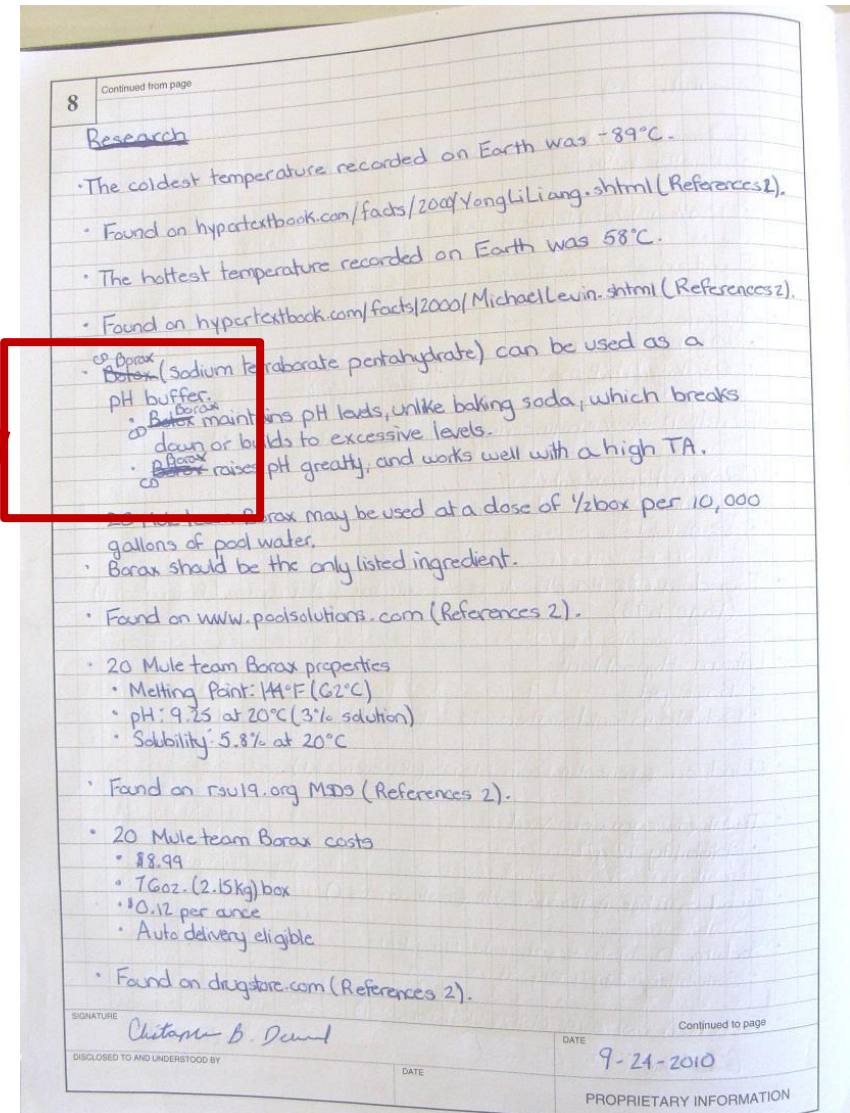 8
Continued from page
Research
·The coldest temperature recorded on Earth was -89°C.
· Found on hypertextbook.com/facts/2000/YongLiLiang.shtml (References 2).
· The hottest temperature recorded on Earth was 58°C.
· Found on hypertextbook.com/facts/2000/MichaelLevin.shtml (References 2).
Borax
· Botox (sodium tetraborate pentahydrate) can be used as a
pH buffer.
Borax
· Botox maintains pH levels, unlike baking soda, which breaks
down or builds to excessive levels.
Borax
· raises pH greatly, and works well with a high TA.
20 Mule team Borax may be used at a dose of 1/2 box per 10,000
gallons of pool water.
· Borax should be the only listed ingredient.
· Found on www.poolsolutions.com (References 2).
· 20 Mule team Borax properties
· Melting Point: 144°F (62°C)
· pH: 9.25 at 20°C (3% solution)
· Solubility: 5.8% at 20°C
· Found on rsu19.org MSDS (References 2).
· 20 Mule team Borax costs
· $8.99
· 76oz. (2.15kg) box
· $0.12 per ounce
· Auto delivery eligible
· Found on drugstore.com (References 2).
SIGNATURE
B.
Continued to page
DATE
9-24-2010
DISCLOSED TO AND UNDERSTOOD BY
DATE
PROPRIETARY INFORMATION